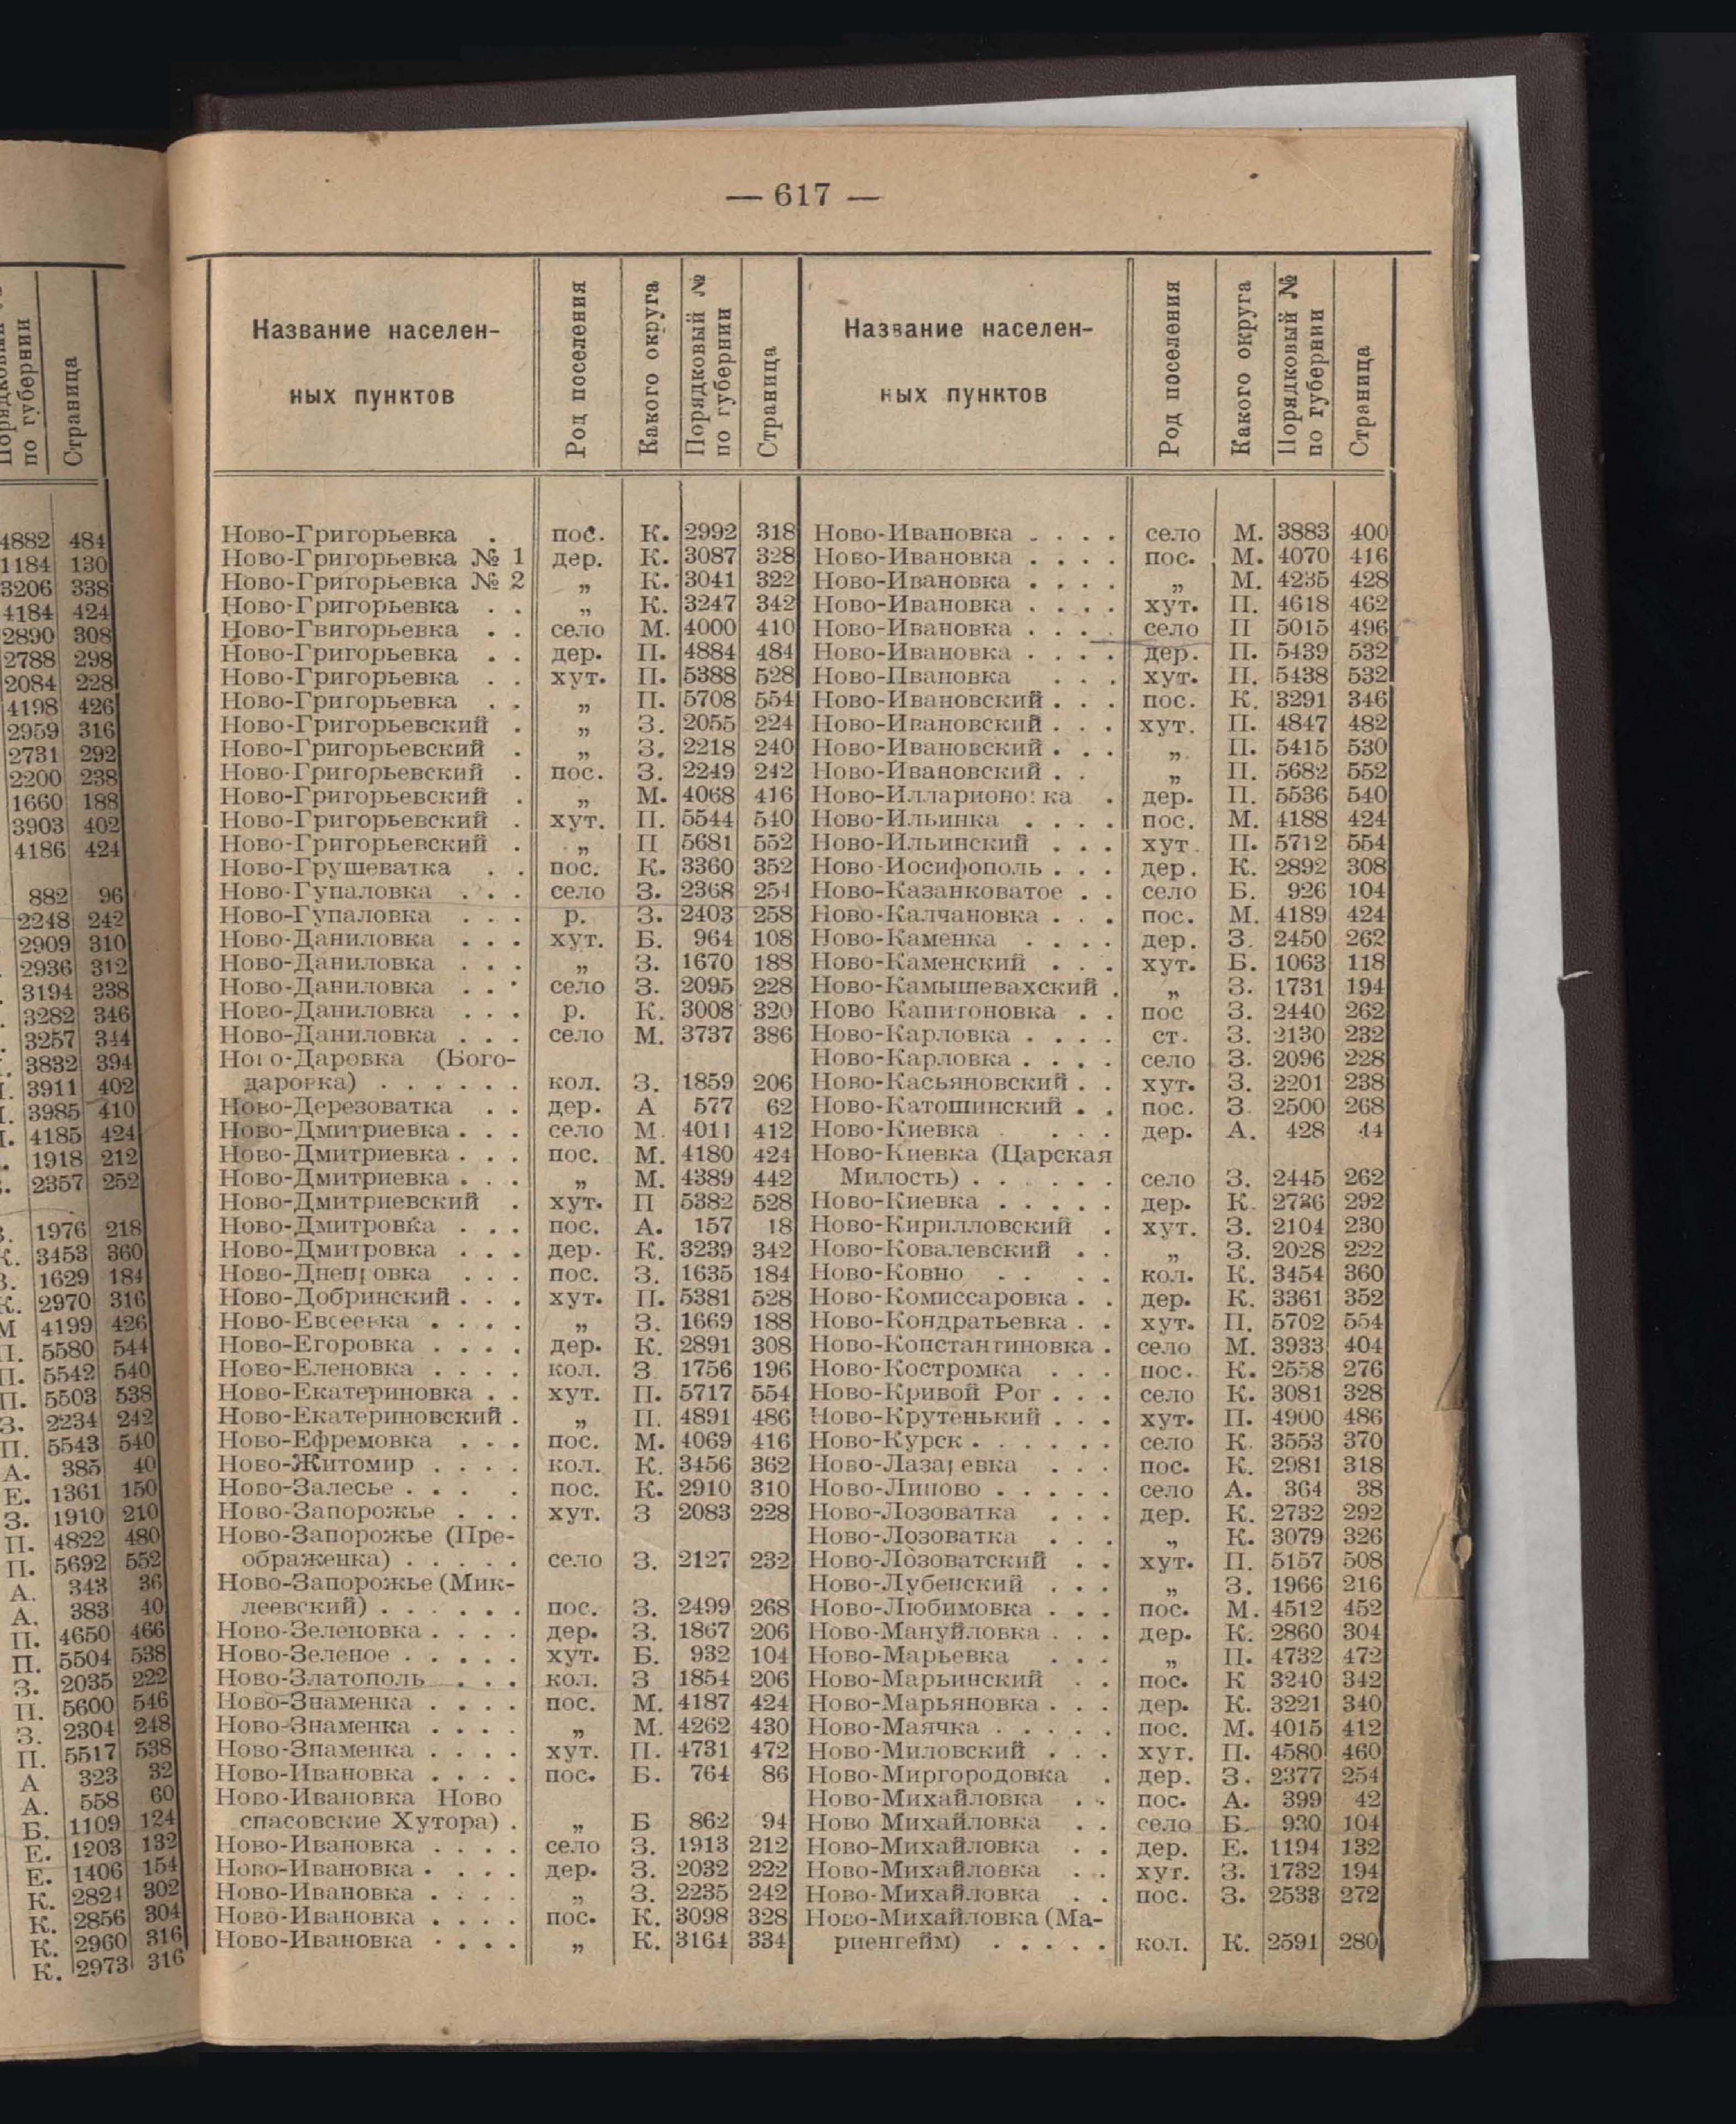 — 617 —
Название населен-
ных пунктов
Род поселения
Какого округа
Порядковый №
по губернии
Страница
Название населен-
ных пунктов
Род поселения
Какого округа
Порядковый №
по губернии
Страница
Ново-Григорьевка . пос. К. 2992 318
Ново-Григорьевка № 1 дер. К. 3087 328
Ново-Григорьевка № 2 „ К. 3041 322
Ново-Григорьевка . . „ К. 3247 342
Ново-Гвигорьевка . . село М. 4000 410
Ново-Григорьевка . . дер. П. 4884 484
Ново-Григорьевка . . хут. П. 5388 528
Ново-Григорьевка . . „ П. 5708 554
Ново-Григорьевский . „ З. 2055 224
Ново-Григорьевский . „ З. 2218 240
Ново-Григорьевский . пос. З. 2249 242
Ново-Григорьевский . „ М. 4068 416
Ново-Григорьевский . хут. П. 5544 540
Ново-Григорьевский . „ П 5681 552
Ново-Грушеватка . . пос. К. 3360 352
Ново-Гупаловка . . . село З. 2368 254
Ново-Гупаловка . . . р. З. 2403 258
Ново-Даниловка . . . хут. Б. 964 108
Ново-Даниловка . . . „ З. 1670 188
Ново-Даниловка . . . село З. 2095 228
Ново-Даниловка . . . р. К. 3008 320
Ново-Даниловка . . . село М. 3737 386
Ново-Даровка (Бого-
даровка) . . . . . . кол. З. 1859 206
Ново-Дерезоватка . . дер. А 577 62
Ново-Дмитриевка . . . село М. 4011 412
Ново-Дмитриевка . . . пос. М. 4180 424
Ново-Дмитриевка . . . „ М. 4389 442
Ново-Дмитриевский . хут. П 5382 528
Ново-Дмитровка . . . пос. А. 157 18
Ново-Дмитровка . . . дер. К. 3239 342
Ново-Днепровка . . . пос. З. 1635 184
Ново-Добринский . . . хут. П. 5381 528
Ново-Евсеевка . . . . „ З. 1669 188
Ново-Егоровка . . . . дер. К. 2891 308
Ново-Еленовка . . . . кол. З 1756 196
Ново-Екатериновка . . хут. П. 5717 554
Ново-Екатериновский . „ П. 4891 486
Ново-Ефремовка . . . пос. М. 4069 416
Ново-Житомир . . . . кол. К. 3456 362
Ново-Залесье . . . . пос. К. 2910 310
Ново-Запорожье . . . хут. З 2083 228
Ново-Запорожье (Пре-
ображенка) . . . . . село З. 2127 232
Ново-Запорожье (Мик-
леевский) . . . . . . пос. З. 2499 268
Ново-Зеленовка . . . . дер. З. 1867 206
Ново-Зеленое . . . . . хут. Б. 932 104
Ново-Златополь . . . кол. З 1854 206
Ново-Знаменка . . . . пос. М. 4187 424
Ново-Знаменка . . . . „ М. 4262 430
Ново-Знаменка . . . . хут. П. 4731 472
Ново-Ивановка . . . . пос. Б. 764 86
Ново-Ивановка Ново
спасовские Хутора) . „ Б 862 94
Ново-Ивановка . . . . село З. 1913 212
Ново-Ивановка . . . . дер. З. 2032 222
Ново-Ивановка . . . . „ З. 2235 242
Ново-Ивановка . . . . пос. К. 3098 328
Ново-Ивановка . . . . „ К. 3164 334
Ново-Ивановка . . . . село М. 3883 400
Ново-Ивановка . . . . пос. М. 4070 416
Ново-Ивановка . . . . „ М. 4235 428
Ново-Ивановка . . . . хут. П. 4618 462
Ново-Ивановка . . . . село П 5015 496
Ново-Ивановка . . . . дер. П. 5439 532
Ново-Ивановка . . . хут. П. 5438 532
Ново-Ивановский . . . пос. К. 3291 346
Ново-Ивановский . . . хут. П. 4847 482
Ново-Ивановский . . . „ П. 5415 530
Ново-Ивановский . . „ П. 5682 552
Ново-Илларионовка . дер. П. 5536 540
Ново-Ильинка . . . . пос. М. 4188 424
Ново-Ильинский . . . хут. П. 5712 554
Ново-Иосифополь . . . дер. К. 2892 308
Ново-Казанковатое . . село Б. 926 104
Ново-Калчановка . . . пос. М. 4189 424
Ново-Каменка . . . . дер. З. 2450 262
Ново-Каменский . . . хут. Б. 1063 118
Ново-Камышевахский . „ З. 1731 194
Ново Капитоновка . . пос З. 2440 262
Ново-Карловка . . . . ст. З. 2130 232
Ново-Карловка . . . . село З. 2096 228
Ново-Касьяновский . . хут. З. 2201 238
Ново-Катошинский . . пос. З. 2500 268
Ново-Киевка . . . дер. А. 428 44
Ново-Киевка (Царская
Милость) . . . . . . село З. 2445 262
Ново-Киевка . . . . . дер. К. 2736 292
Ново-Кирилловский . хут. З. 2104 230
Ново-Ковалевский . . „ З. 2028 222
Ново-Ковно . . . . кол. К. 3454 360
Ново-Комиссаровка . . дер. К. 3361 352
Ново-Кондратьевка . . хут. П. 5702 554
Ново-Константиновка . село М. 3933 404
Ново-Костромка . . . пос. К. 2558 276
Ново-Кривой Рог . . . село К. 3081 328
Ново-Крутенький . . . хут. П. 4900 486
Ново-Курск . . . . . . село К. 3553 370
Ново-Лазаревка . . . пос. К. 2981 318
Ново-Липово . . . . . село А. 364 38
Ново-Лозоватка . . . дер. К. 2732 292
Ново-Лозоватка . . . „ К. 3079 326
Ново-Лозоватский . . хут. П. 5157 508
Ново-Лубенский . . . „ З. 1966 216
Ново-Любимовка . . . пос. М. 4512 452
Ново-Мануйловка . . . дер. К. 2860 304
Ново-Марьевка . . . „ П. 4732 472
Ново-Марьинский . . пос. К 3240 342
Ново-Марьяновка . . . дер. К. 3221 340
Ново-Маячка . . . . . пос. М. 4015 412
Ново-Миловский . . . хут. П. 4580 460
Ново-Миргородовка . дер. З. 2377 254
Ново-Михайловка . . пос. А. 399 42
Ново Михайловка . . село Б. 930 104
Ново-Михайловка . . дер. Е. 1194 132
Ново-Михайловка . . хут. З. 1732 194
Ново-Михайловка . . пос. З. 2533 272
Ново-Михайловка (Ма-
риенгейм) . . . . . кол. К. 2591 280
по губернии
Страница
4882 484
1184 130
3206 338
4184 424
2890 308
2788 298
2084 228
4198 426
2959 316
2731 292
2200 238
1660 188
3903 402
4186 424
882 96
2248 242
2909 310
2936 312
3194 338
3282 346
3257 344
3832 394
3911 402
3985 410
4185 424
1918 212
2357 252
1976 218
К. 3453 360
З. 1629 184
К. 2970 316
М 4199 426
П. 5580 544
П. 5542 540
П. 5503 538
З. 2234 242
П. 5543 540
А. 385 40
Е. 1361 150
З. 1910 210
П. 4822 480
П. 5692 552
А. 343 36
А. 383 40
П. 4650 466
П. 5504 538
З. 2035 222
П. 5600 546
З. 2304 248
П. 5517 538
А 323 32
А. 558 60
Б. 1109 124
Е. 1203 132
Е. 1406 154
К. 2824 302
К. 2856 304
К. 2960 316
К. 2973 316